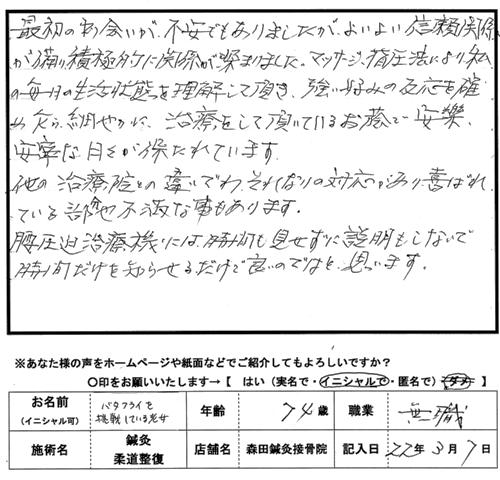 最初の出会いが、不安でもありましたが、よいよい信頼関係
が備り積極的に関係が深まりました。マッサージ、指圧法により私
の毎日の生活状態を理解して頂き、強い好みの反応を確
め乍ら、細やかに、治療をして頂いているお蔭で安楽、
安寧な日々が保たれています。
他の治療院との違いでわ、それなりの対応があり喜ばれ
ている部や不淑な事もあります。
腰圧迫治療機には時間も見せずに説明もしないで
時間だけを知らせるだけで良いのではと、思います。
※あなた様の声をホームページや紙面などでご紹介してもよろしいですか？
〇印をお願いいたします→【 はい（実名で・イニシャルで・匿名で） ダメ 】
お名前
（イニシャル可）
バタフライを
挑戦している老女
年齢
74歳
職業
無職
施術名
鍼灸
柔道整復
店舗名
森田鍼灸接骨院
記入日
22年3月7日